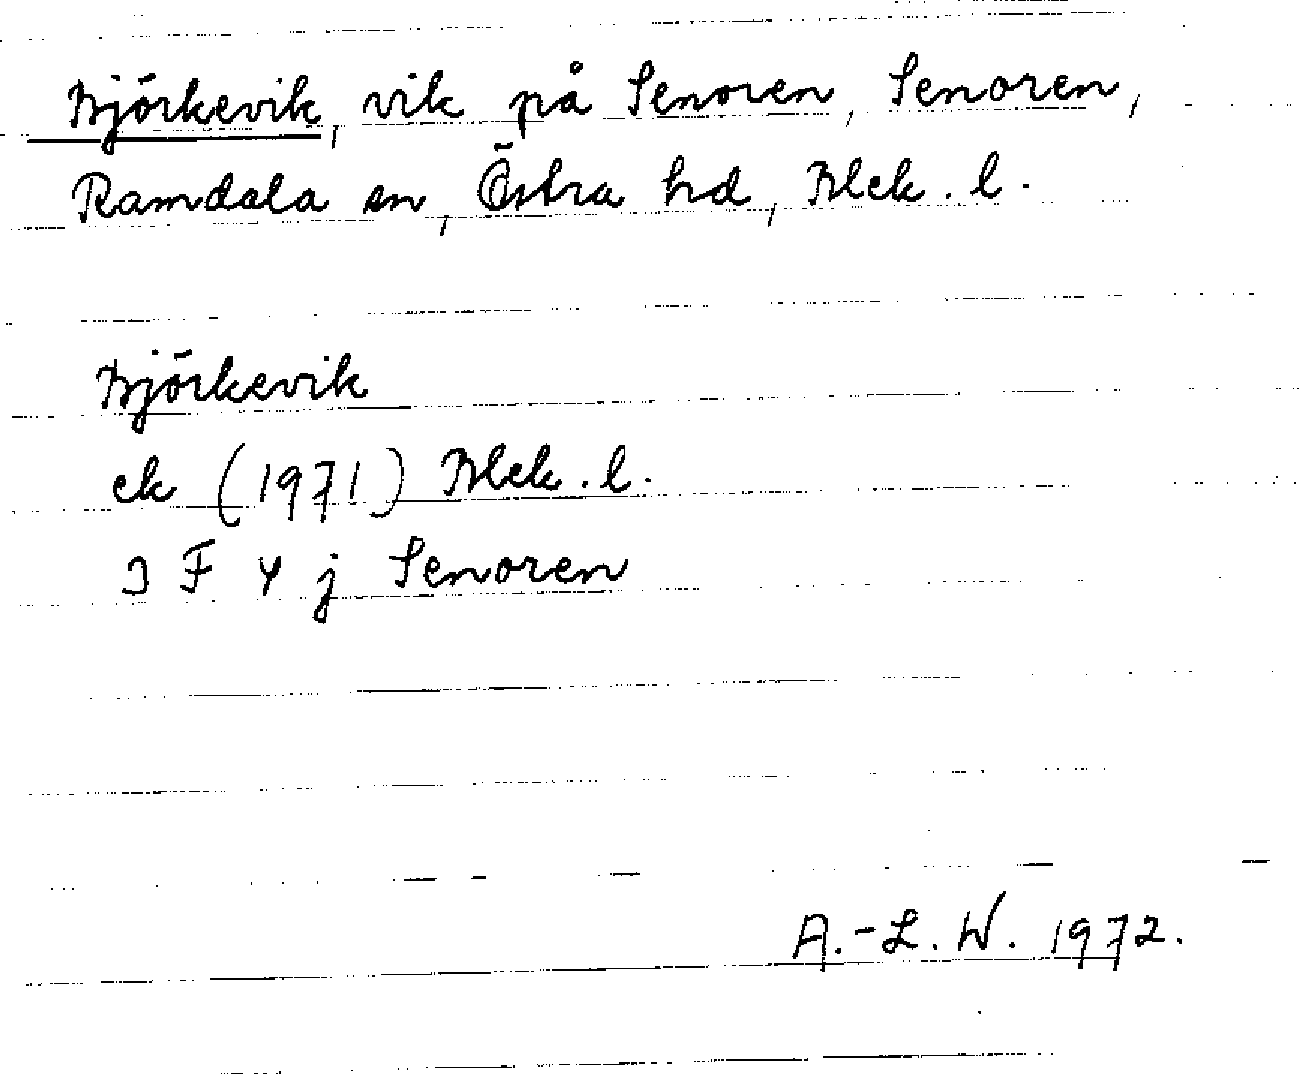 Björkevik, vik på Senoren, Senoren,
Ramdala sn, Östra hd, Blek. l.
Björkevik
ek (1971) Blek. l.
3 F 4 j Senoren
A.-L. W. 1972.